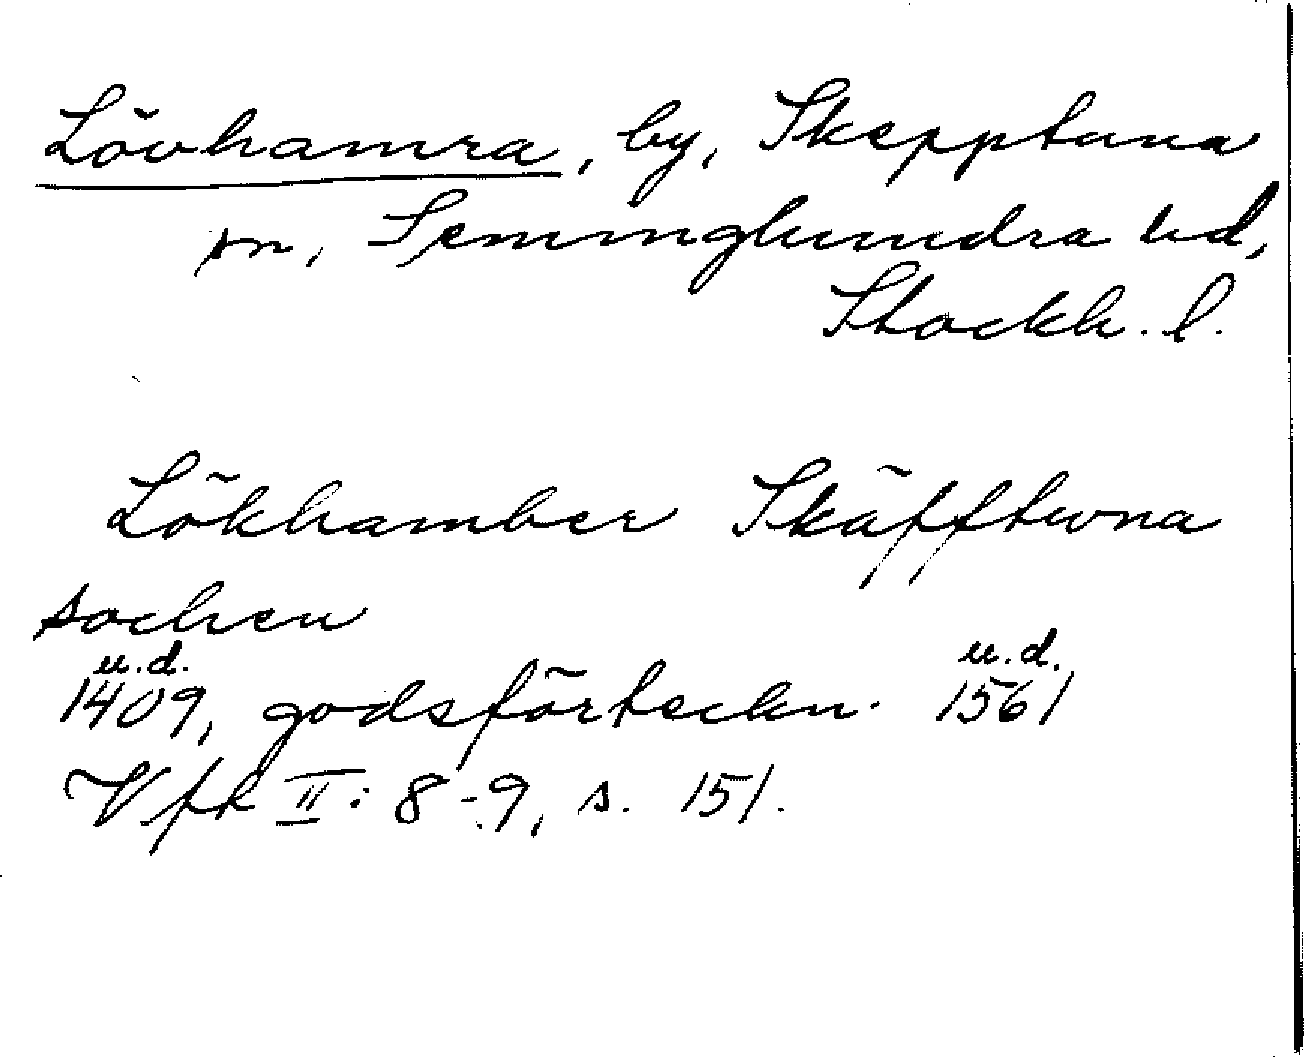 Lövhamra, by, Skepptuna
sn, Seminghundra hd,
Stockh. l.
Lökhamber Skäfftwna
sochen
u.d. u.d.
1409, godsförteckn. 1561
Vfk II: 8-9, s. 151.